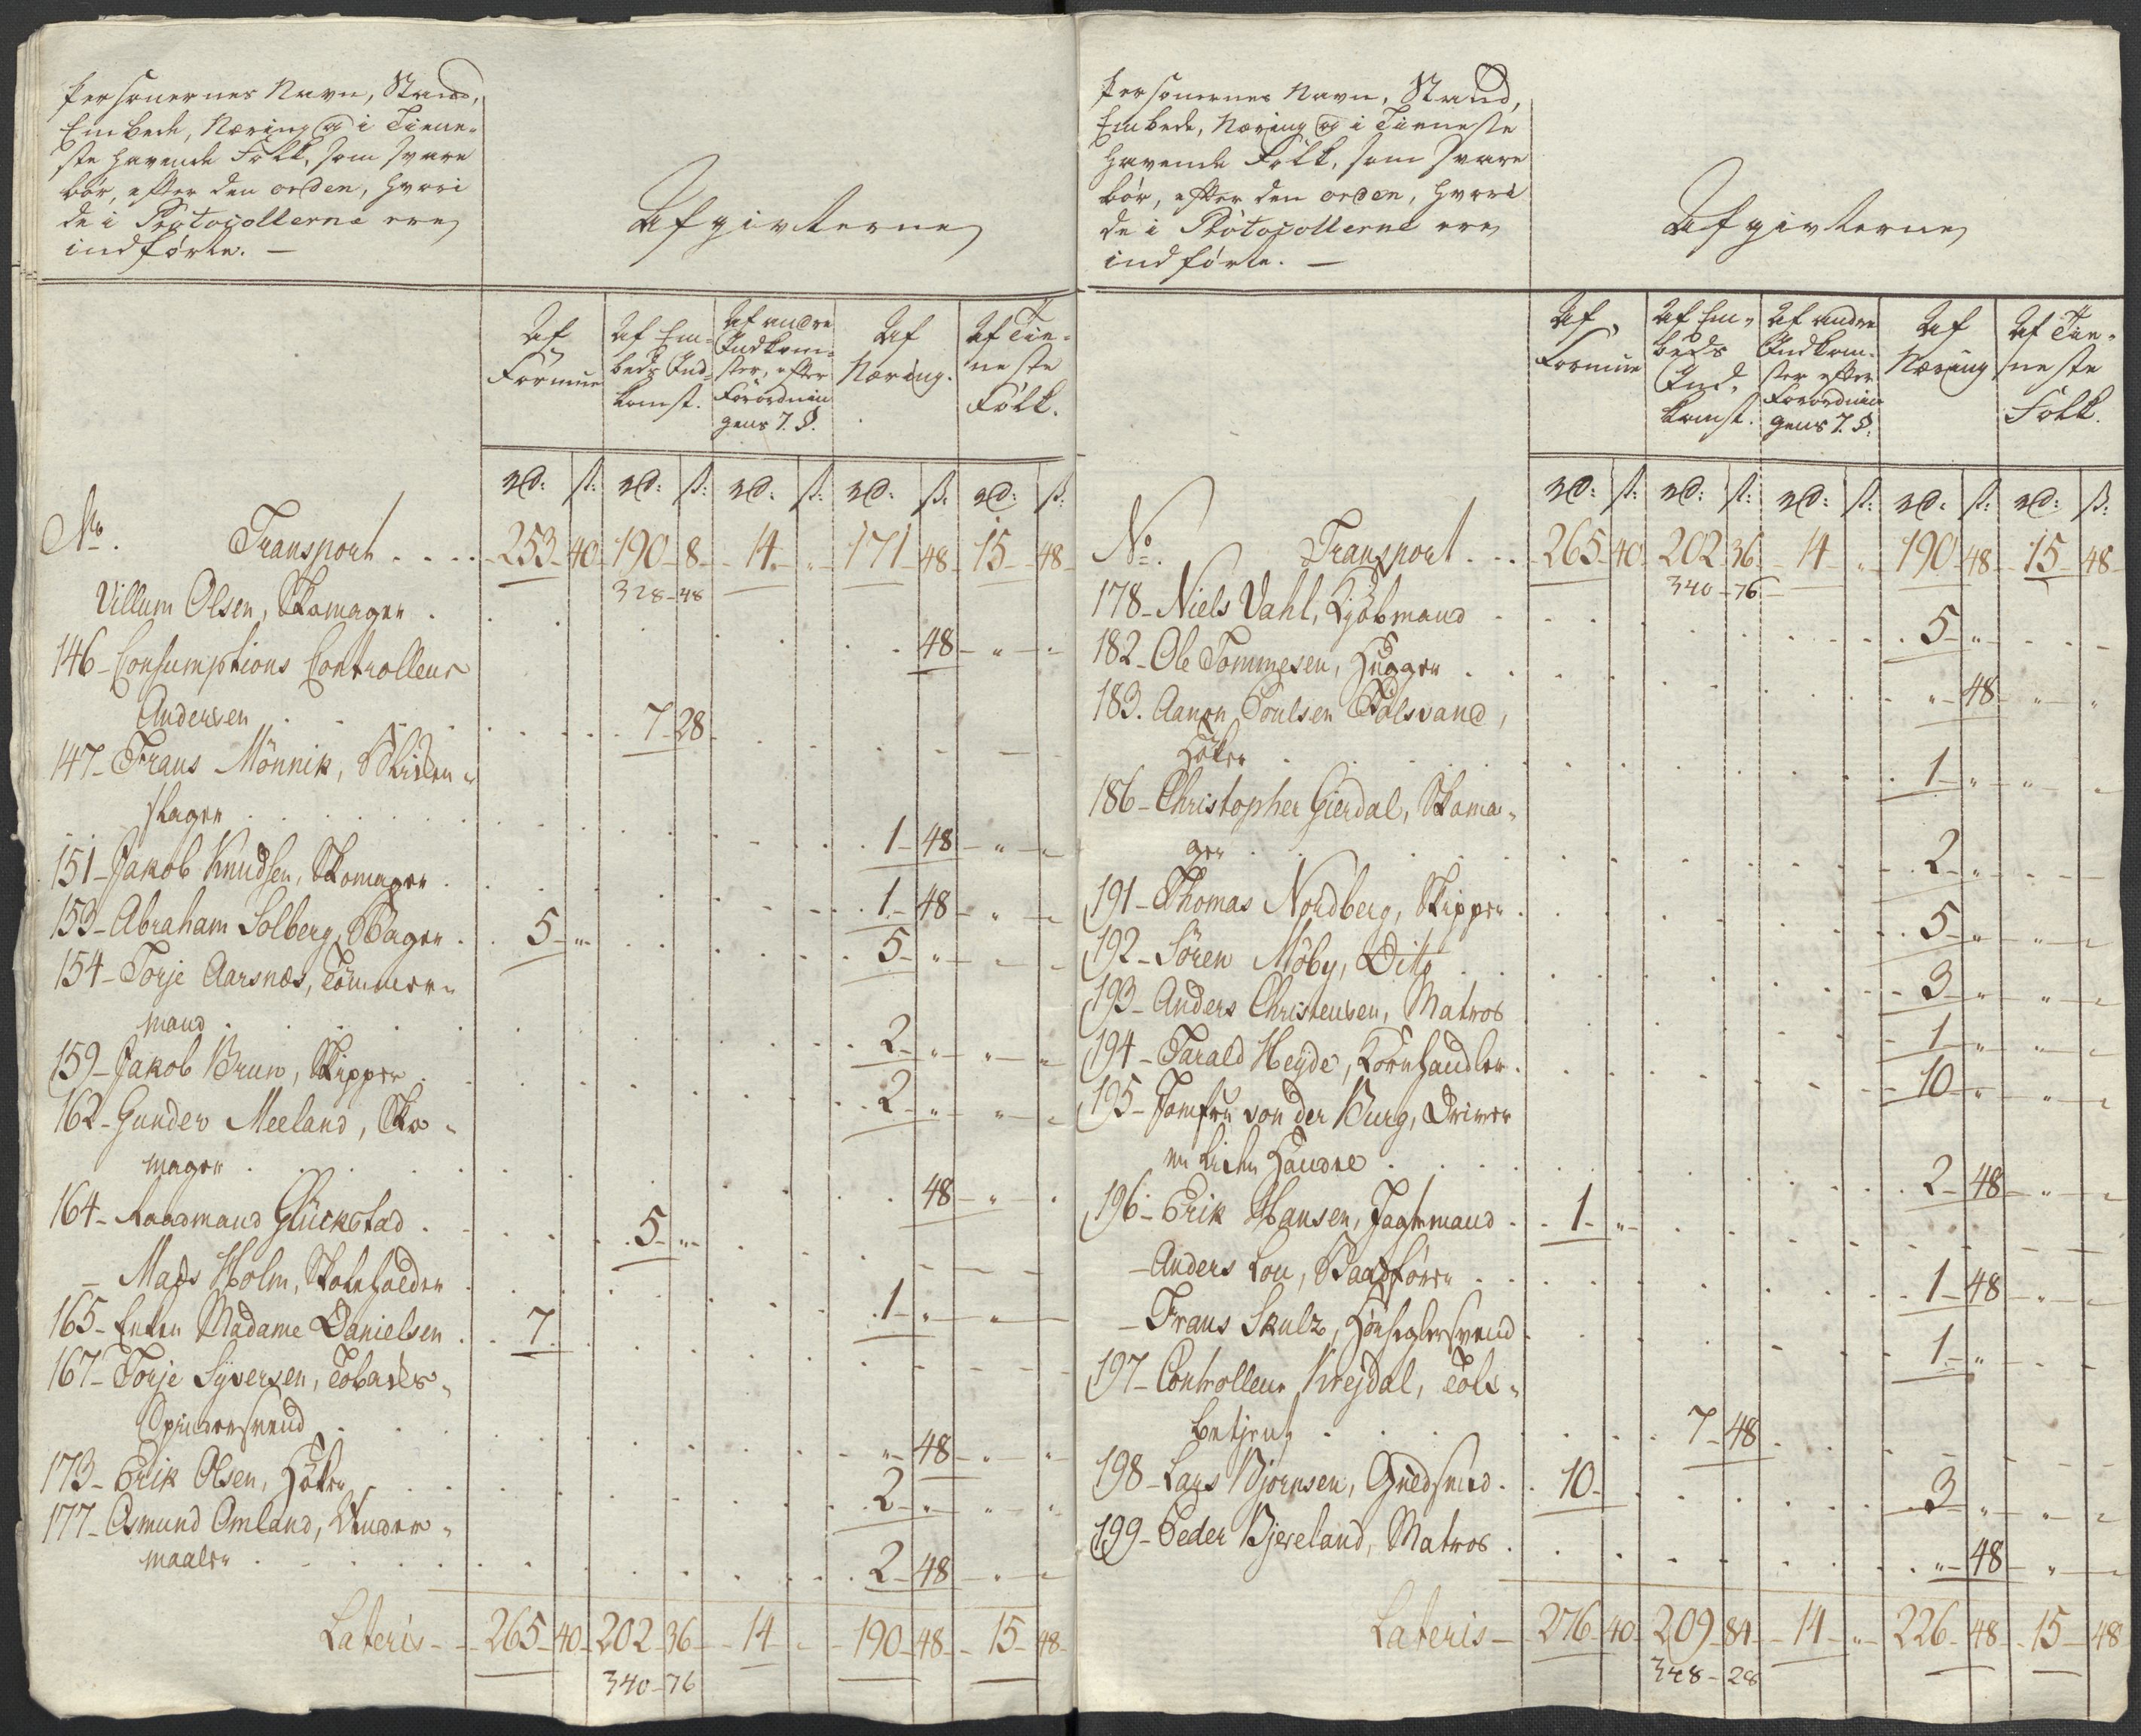 Personernes Navn, Stand,
Embede, Næring og i Tiene-
ste havende Folk, som svare
bør, efter den orden, hvori
de i Protocollerne ere
indførte. —
Afgivterne
Af Formue
Af Em-
beds Ind-
komst.
Af andre
Indkom-
ster, efter
Forordnin
gens 7. §.
Af Næring.
Af Tie-
neste
Folk.
rd: s: rd: s: rd: s: rd: s: rd: s:
No. Transport . . . . 253 40 190 8 14 " 171 48 15 48
328-48
Villum Olsen, Skomager . 48 " "
146 - Consumptions Controlleur
Andersen . 7 28
147 - Frans Mönnik, Blikken-
slager . 1 48 " "
151 - Jakob Knudsen, Skomager . 1 48 " "
153 - Abraham Solberg, Bager . 5 " 5 "
154 - Torje Aarsnæs, Tömmer-
mand . 2 " " "
159 - Jakob Brun, Skipper . 2 " " "
162 - Gunder Meeland, Sko-
mager . 48 "
164 - Raadmand Glückstad . 5 "
— Mads Holm, Skoleholder . 1 " "
165 - Enken Madame Danielsen . 7
167 - Torje Syversen, Tobaks-
Spindersvend . " 48 " "
173 - Erik Olsen, Höker . 2 " " "
177 - Asmund Omland, Vinder-
maaler . 2 48 " "
Lateris - 265 40 202 36 14 " 190 48 15 48
340-76
Personernes Navn, Stand,
Embede, Næring og i Tieneste
havende Folk, som svare
bør, efter den orden, hvori
de i Protocollerne ere
indførte. —
Afgivterne
Af Formue
Af Em-
beds
Ind-
komst.
Af andre
Indkom-
ster efter
Forordnin
gens 7. §.
Af Næring
Af Tie-
neste
Folk.
rd: s: rd: s: rd: s: rd: s: rd: s:
No. Transport . . . 265 40 202 36 14 " 190 48 15 48
340-76
178 - Niels Vahl, Kjöbmand . 5 "
182 - Ole Tommesen, Hugger . " 48 " "
183. Aanon Poulsen Kolsvand,
Höker . 1 " "
186 - Christopher Gierdal, Skoma-
ger . 2 "
191 - Thomas Nordberg, Skipper . 5 " " "
192 - Sören Möby, Ditto . 3 " " "
193 - Anders Christensen, Matros 1 " " "
194 - Tarald Heyde, Kornhandler . 10 " " "
195 - Jomfru von der Burg, Driver
en liden Handel . 2 48 " "
196 - Erik Hansen, Jagtemand . 1 "
— Anders Lou, Baadförer . 1 48 " "
— Frans Skulz, 1 "
197 - Controlleur Krejdal, Told-
betjent . 7 48
198 - Lars Bjornsen, Guldsmed . 10 3 " " "
199 - Peder Bjereland, Matros . " 48 " "
Lateris — 276 40 209 84 14 " 226 48 15 48
348-28